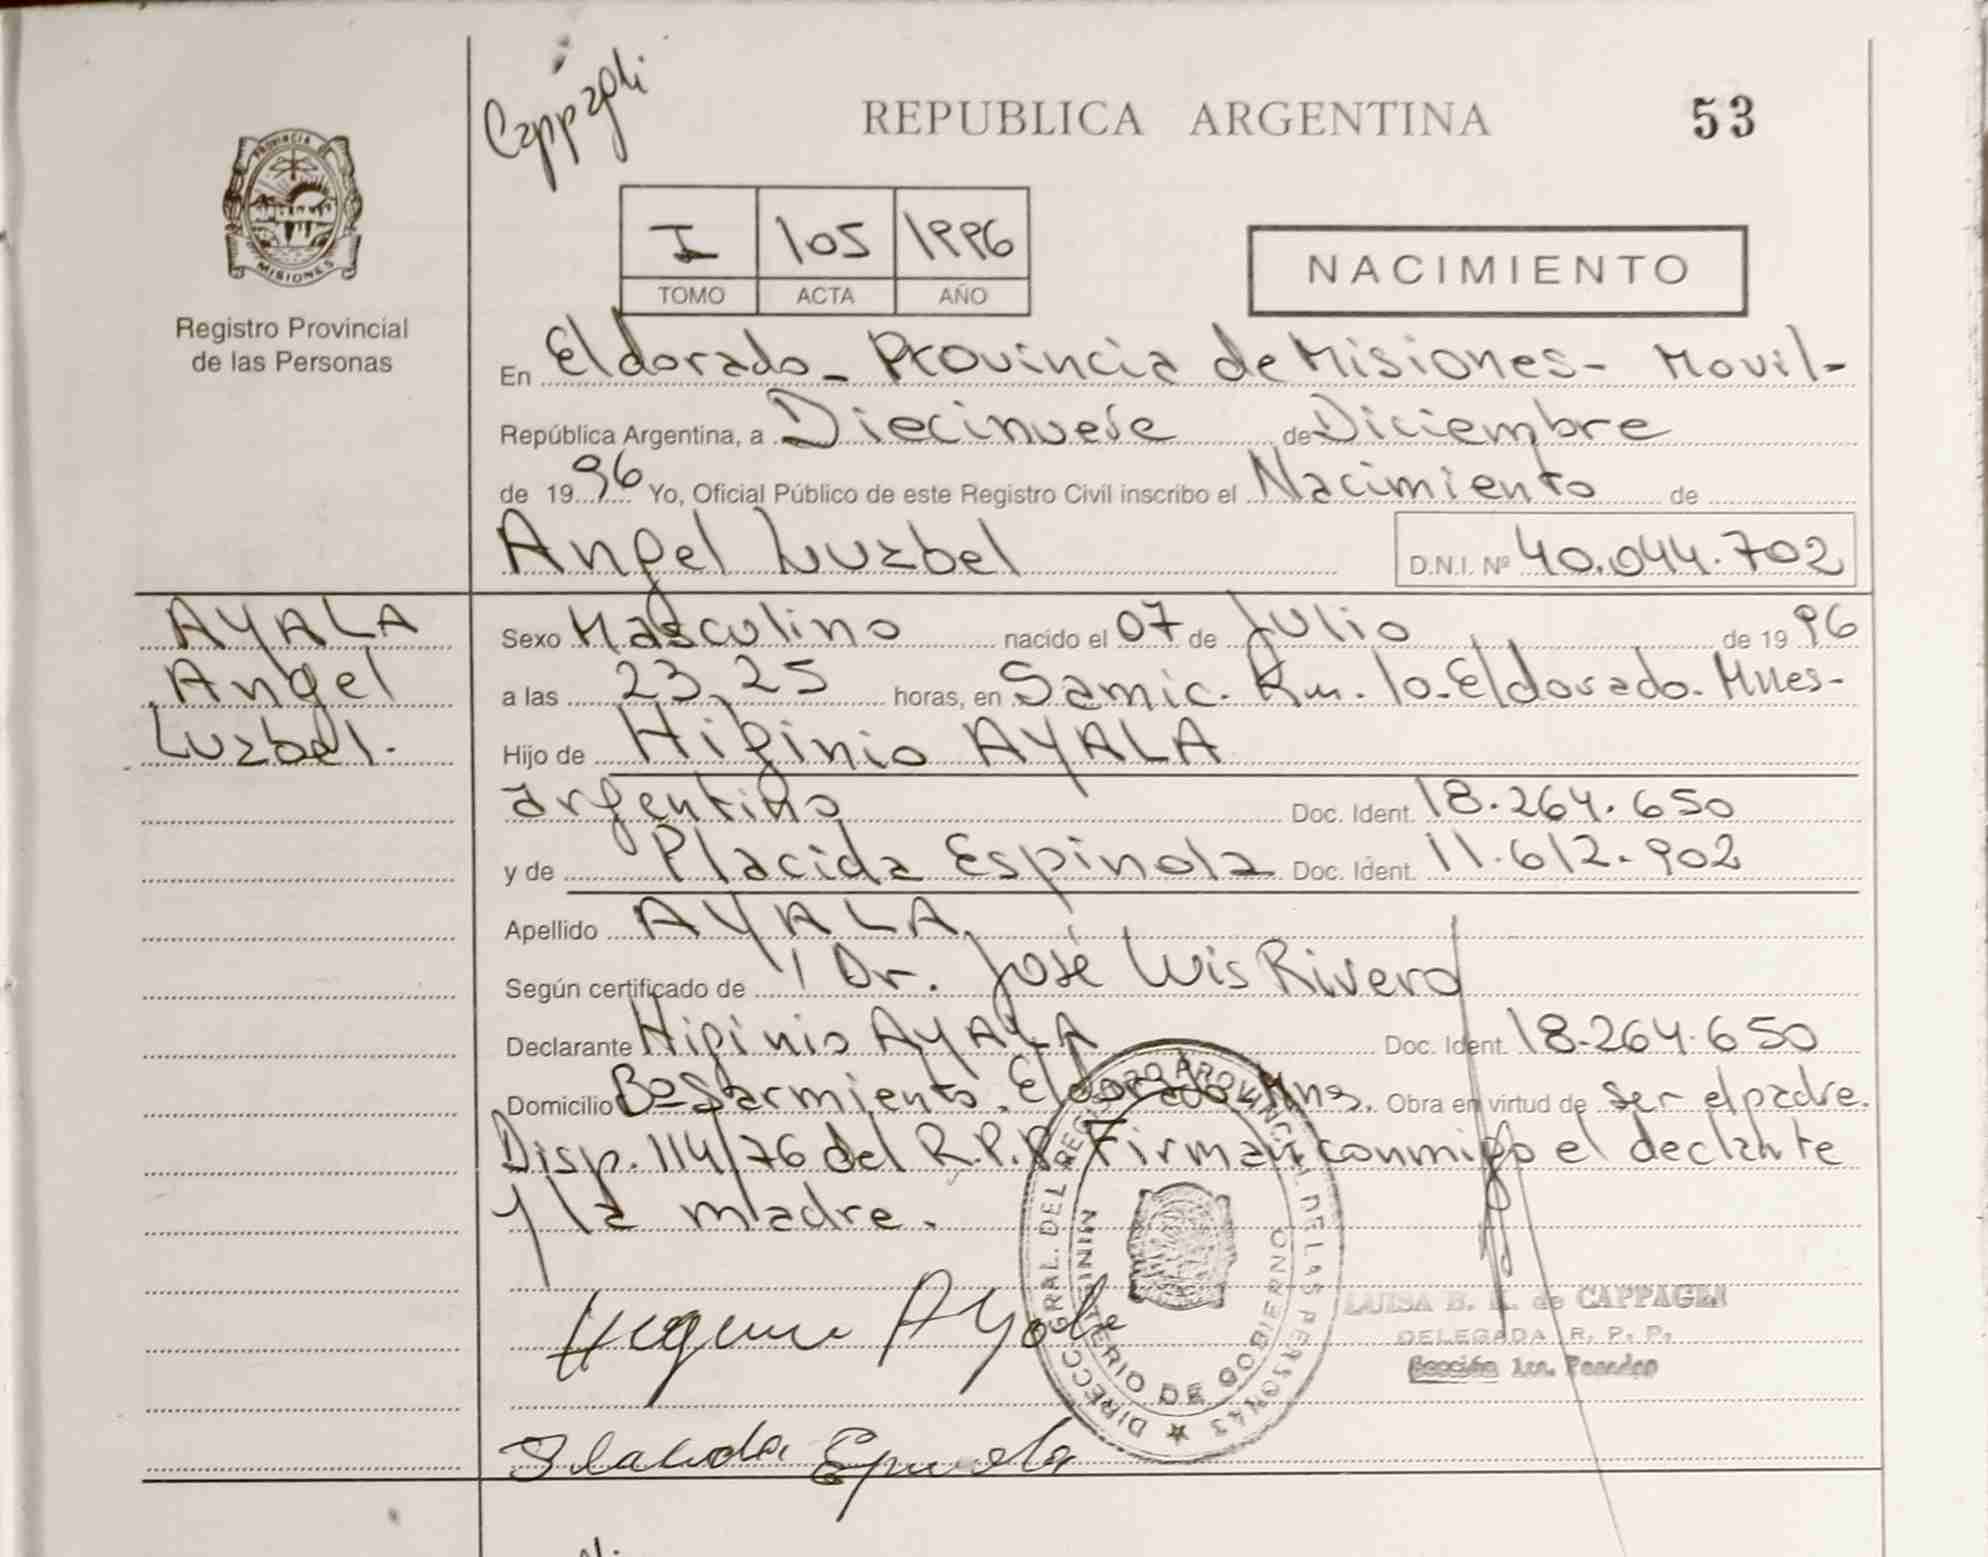 Cappagli
REPUBLICA ARGENTINA 53
PROVINCIA DE MISIONES
Registro Provincial
de las Personas
I 105 1996
TOMO ACTA AÑO
NACIMIENTO
En Eldorado - Provincia de Misiones - Movil-
República Argentina, a Diecinueve de Diciembre
de 19 96 Yo, Oficial Público de este Registro Civil inscribo el Nacimiento de
Angel Luzbel D.N.I. Nº 40.044.702
AYALA
Angel
Luzbel.
Sexo Masculino nacido el 07 de Julio de 19 96
a las 23,25 horas, en Samic. Km. 10. Eldorado. Mnes-
Hijo de Higinio AYALA
argentino Doc. Ident. 18.264.650
y de Placida Espinola Doc. Ident. 11.612.902
Apellido AYALA
Según certificado de Dr. José Luis Rivero
Declarante Higinio AYALA Doc. Ident. 18.264.650
Domicilio Bº Sarmiento. Eldorado Mns. Obra en virtud de ser el padre.
Disp. 114/76 del R.P.P. Firman conmigo el declante
y la madre.
DIRECC. GRAL. DEL REGISTRO PROVINCIAL DE LAS PERSONAS
MINISTERIO DE GOBIERNO
LUISA B. K. de CAPPAGLI
DELEGADA R. P. P.
Sección 1ra. Posadas
Higinio Ayala
Placida Espinola